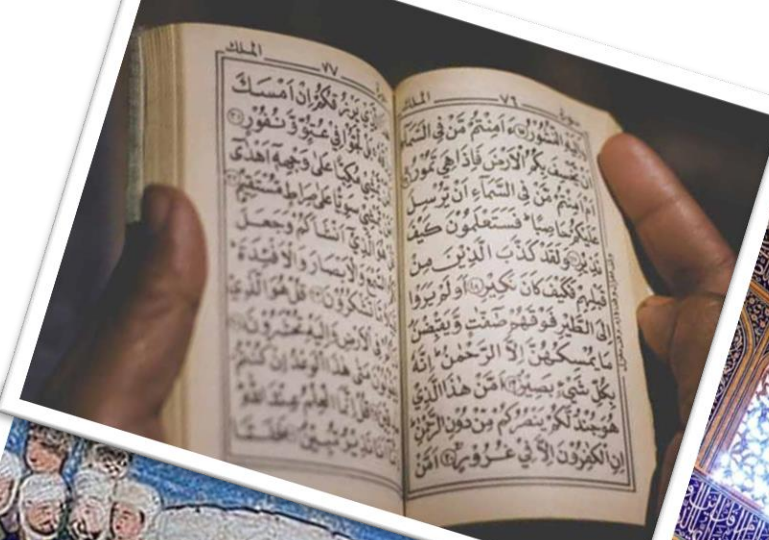 الملك ٧٦ سورة
النُّشُوْرُ ءَاَمِنْتُمْ مَّنْ فِى السَّمَآءِ
اَنْ يَّخْسِفَ بِكُمُ الْاَرْضَ فَاِذَا هِىَ تَمُوْرُ
اَمْ اَمِنْتُمْ مَّنْ فِى السَّمَآءِ اَنْ يُّرْسِلَ
عَلَيْكُمْ حَاصِبًا فَسَتَعْلَمُوْنَ كَيْفَ
نَذِيْرِ ۝۱۷ وَلَقَدْ كَذَّبَ الَّذِيْنَ مِنْ
قَبْلِهِمْ فَكَيْفَ كَانَ نَكِيْرِ ۝۱۸ اَوَلَمْ يَرَوْا
اِلَى الطَّيْرِ فَوْقَهُمْ صٰٓفّٰتٍ وَّيَقْبِضْنَ
مَا يُمْسِكُهُنَّ اِلَّا الرَّحْمٰنُ اِنَّهٗ
بِكُلِّ شَىْءٍ بَصِيْرٌ ۝۱۹ اَمَّنْ هٰذَا الَّذِىْ
هُوَ جُنْدٌ لَّكُمْ يَنْصُرُكُمْ مِّنْ دُوْنِ الرَّحْمٰنِ
اِنِ الْكٰفِرُوْنَ اِلَّا فِىْ غُرُوْرٍ ۝۲۰ اَمَّنْ
الملك ٧٧
الَّذِىْ يَرْزُقُكُمْ اِنْ اَمْسَكَ
لَّجُّوْا فِىْ عُتُوٍّ وَّنُفُوْرٍ ۝۲۱
يَّمْشِىْ مُكِبًّا عَلٰى وَجْهِهٖٓ اَهْدٰٓى
يَّمْشِىْ سَوِيًّا عَلٰى صِرَاطٍ مُّسْتَقِيْمٍ
هُوَ الَّذِىْٓ اَنْشَاَكُمْ وَجَعَلَ
السَّمْعَ وَالْاَبْصَارَ وَالْاَفْئِدَةَ
تَشْكُرُوْنَ ۝۲۳ قُلْ هُوَ الَّذِىْ
فِى الْاَرْضِ وَاِلَيْهِ تُحْشَرُوْنَ
مَتٰى هٰذَا الْوَعْدُ اِنْ كُنْتُمْ
قُلْ اِنَّمَا الْعِلْمُ عِنْدَ اللّٰهِ
نَذِيْرٌ مُّبِيْنٌ ۝۲۶ فَلَمَّا